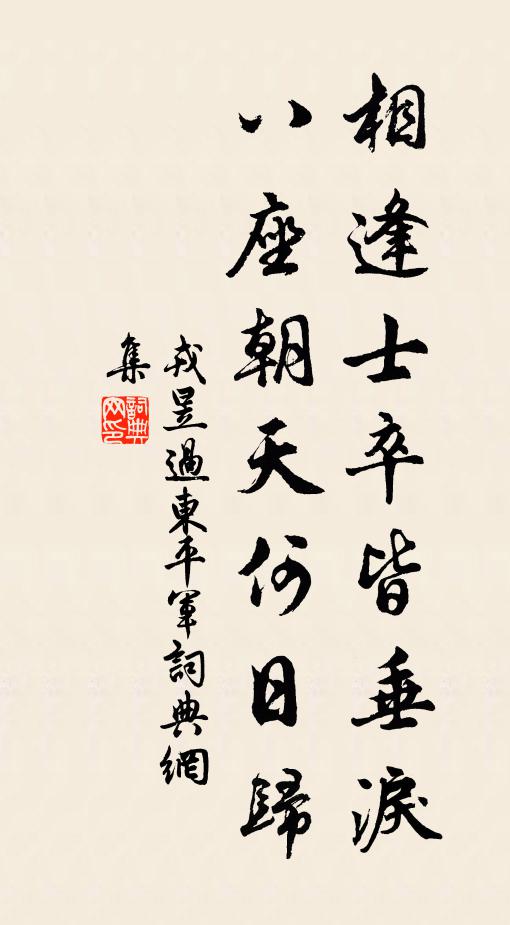 相逢士卒皆垂淚
八座朝天何日歸
戎昱過東平軍詞典網
集
詞典
网印